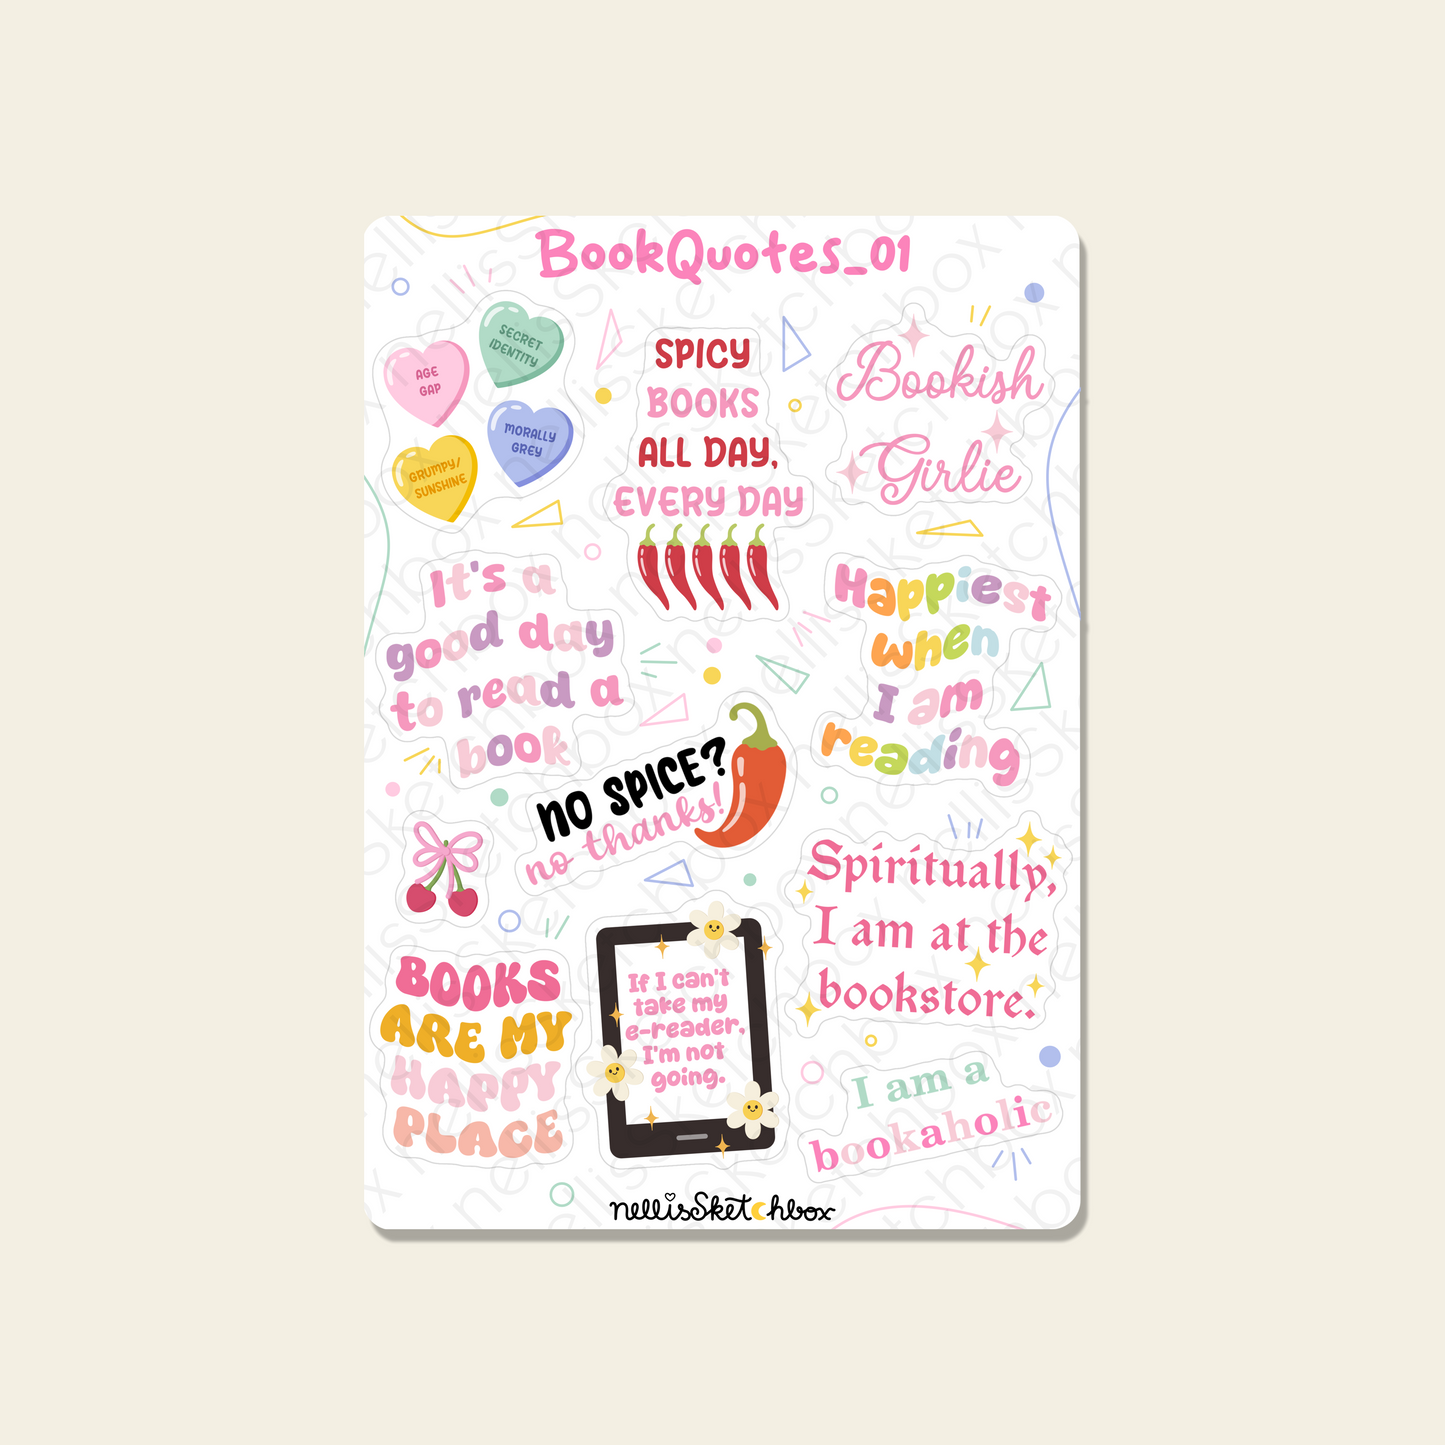 BookQuotes_01
AGE
GAP
SECRET
IDENTITY
MORALLY
GREY
GRUMPY/
SUNSHINE
SPICY
BOOKS
ALL DAY,
EVERY DAY
Bookish
Girlie
It's a
good day
to read a
book
Happiest
when
I am
reading
NO SPICE?
no thanks!
Spiritually,
I am at the
bookstore.
BOOKS
ARE MY
HAPPY
PLACE
If I can't
take my
e-reader,
I'm not
going.
I am a
bookaholic
nellisSketchbox